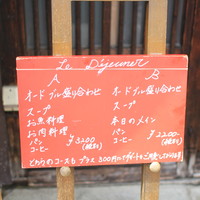 Le Déjeuner
A
オードブル盛り合わせ
スープ
お魚料理
お肉料理
パン
コーヒー
¥3200
(税込)
B
オードブル盛り合わせ
スープ
本日のメイン
パン
コーヒー
¥2200-
(税込)
どちらのコースもプラス300円にてデザートをご用意しております